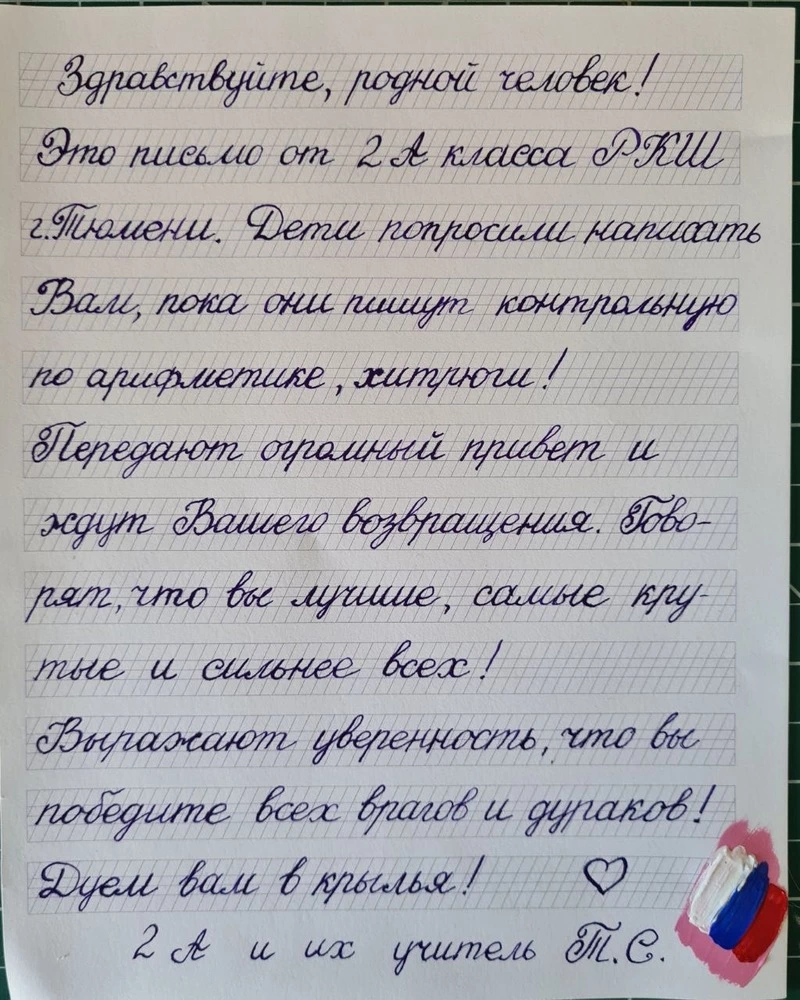 Здравствуйте, родной человек!
Это письмо от 2 А класса РКШ
г.Тюмени. Дети попросили написать
Вам, пока они пишут контрольную
по арифметике, хитрюги!
Передают огромный привет и
ждут Вашего возвращения. Гово-
рят, что вы лучшие, самые кру-
тые и сильнее всех!
Выражают уверенность, что вы
победите всех врагов и дураков!
Дуем вам в крылья! ♡
2 А и их учитель Т.С.